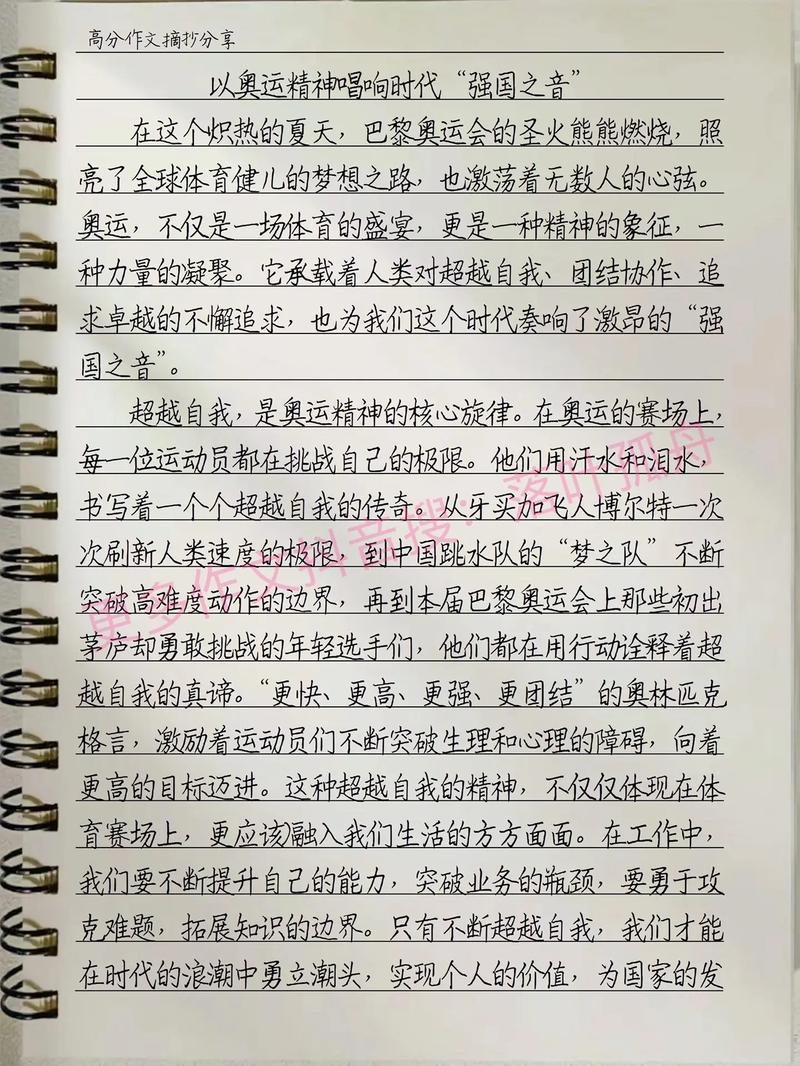 高分作文摘抄分享
以奥运精神唱响时代“强国之音”
在这个炽热的夏天，巴黎奥运会的圣火熊熊燃烧，照
亮了全球体育健儿的梦想之路，也激荡着无数人的心弦。
奥运，不仅是一场体育的盛宴，更是一种精神的象征，一
种力量的凝聚。它承载着人类对超越自我、团结协作、追
求卓越的不懈追求，也为我们这个时代奏响了激昂的“强
国之音”。
超越自我，是奥运精神的核心旋律。在奥运的赛场上，
每一位运动员都在挑战自己的极限。他们用汗水和泪水，
书写着一个个超越自我的传奇。从牙买加飞人博尔特一次
次刷新人类速度的极限，到中国跳水队的“梦之队”不断
突破高难度动作的边界，再到本届巴黎奥运会上那些初出
茅庐却勇敢挑战的年轻选手们，他们都在用行动诠释着超
越自我的真谛。“更快、更高、更强、更团结”的奥林匹克
格言，激励着运动员们不断突破生理和心理的障碍，向着
更高的目标迈进。这种超越自我的精神，不仅仅体现在体
育赛场上，更应该融入我们生活的方方面面。在工作中，
我们要不断提升自己的能力，突破业务的瓶颈，要勇于攻
克难题，拓展知识的边界。只有不断超越自我，我们才能
在时代的浪潮中勇立潮头，实现个人的价值，为国家的发
更多作文抖音搜：落叶孤舟